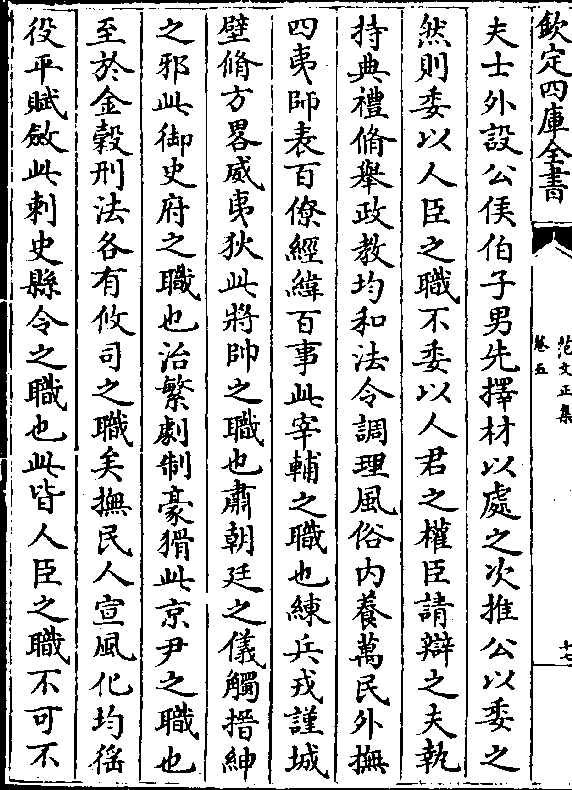 欽定四庫全書
范文正集
卷五
十七
夫士外設公侯伯子男先擇材以處之次推公以委之
然則委以人臣之職不委以人君之權臣請辯之夫執
持典禮脩舉政教均和法令調理風俗内養萬民外撫
四夷師表百僚經緯百事此宰輔之職也練兵戎謹城
壁脩方畧威夷狄此將帥之職也肅朝廷之儀觸搢紳
之邪此御史府之職也治繁劇制豪猾此京尹之職也
至於金穀刑法各有攸司之職矣撫民人宣風化均徭
役平賦斂此刺史縣令之職也此皆人臣之職不可不